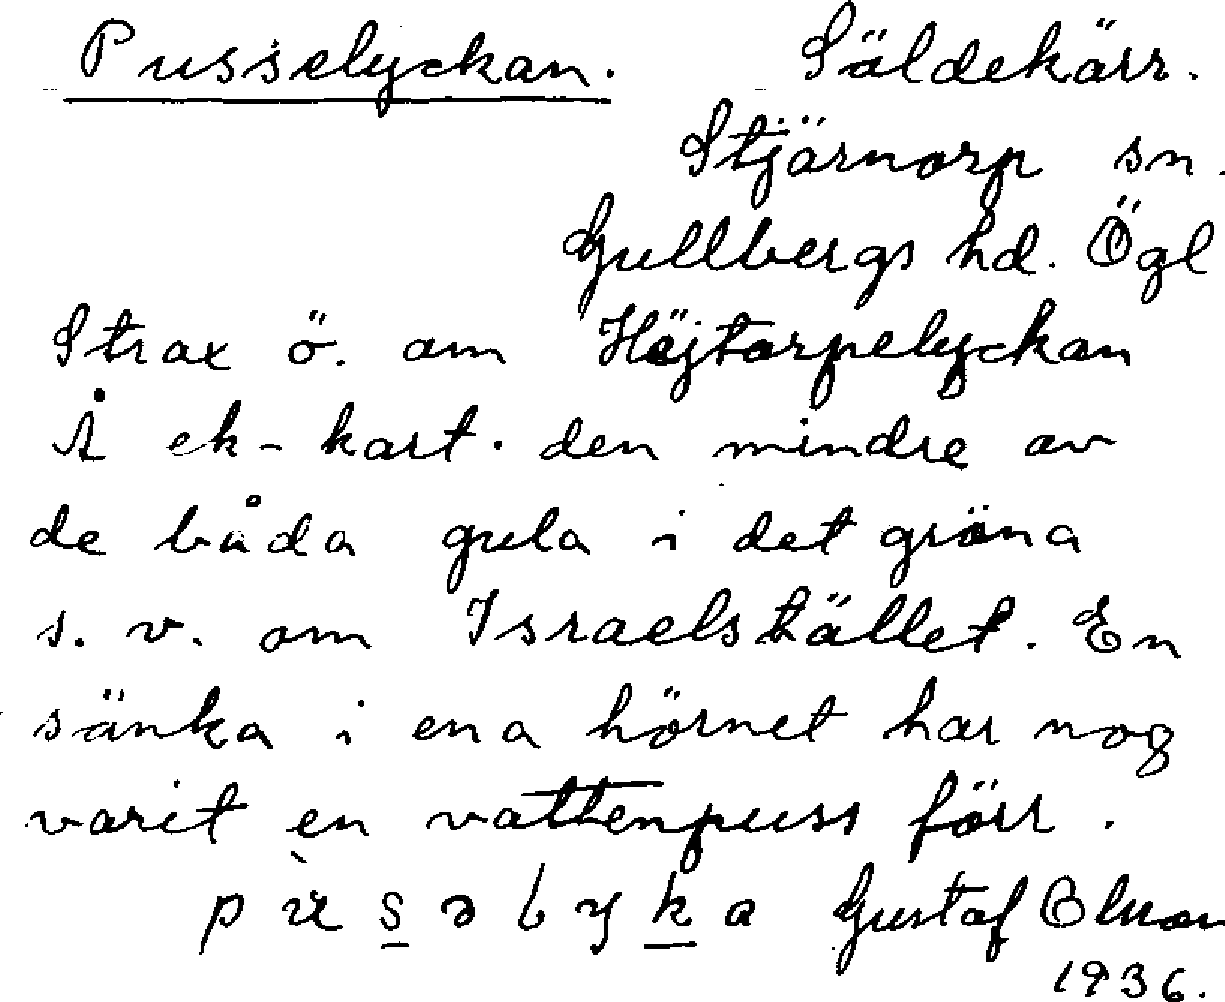 Pusselyckan. Säldekärr.
Stjärnorp sn.
Gullbergs hd. Ögl
Strax ö. om Höjtorpelyckan
Å ek-kart. den mindre av
de båda gula i det gröna
s. v. om Israelstället. En
sänka i ena hörnet har nog
varit en vattenpuss förr.
Gustaf Olsson
1936.